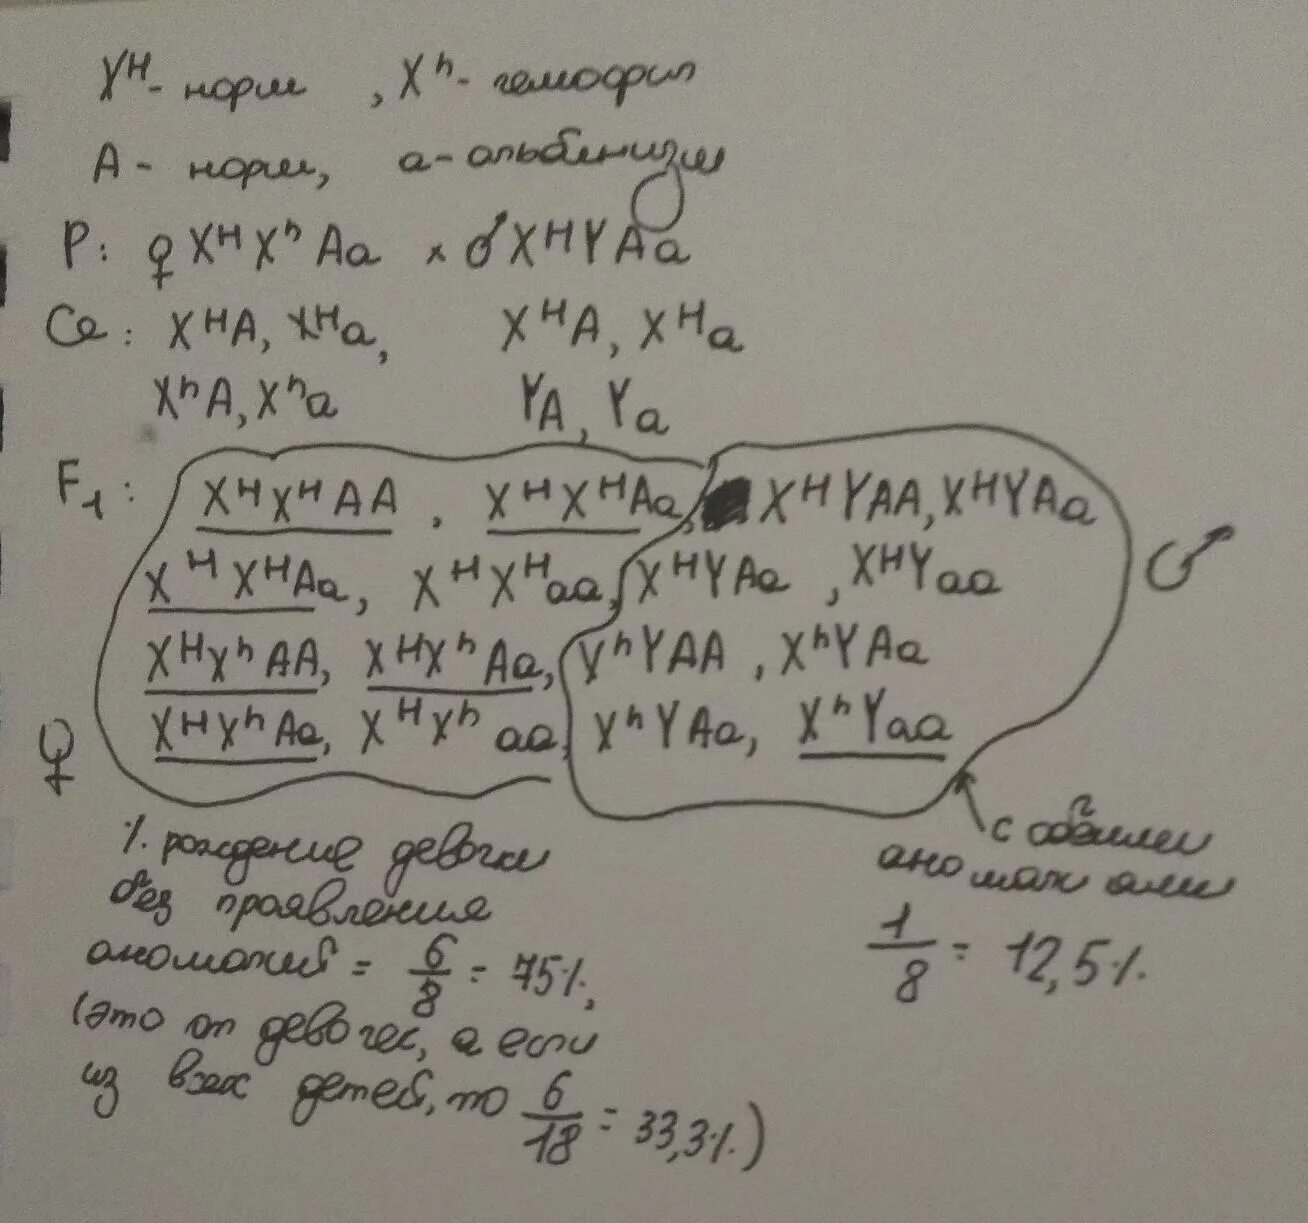 X^H - норм , X^h - гемофил
A - норм, а - альбинизм
P: ♀ X^H X^h Aa × ♂ X^H Y Aa
Ga: X^H A, X^H a, X^H A, X^H a
X^h A, X^h a YA, Ya
F1: X^H X^H AA , X^H X^H Aa, X^H Y AA, X^H Y Aa
X^H X^H Aa, X^H X^H aa, X^H Y Aa , X^H Y aa ♂
X^H X^h AA, X^H X^h Aa, X^h Y AA , X^h Y Aa
♀ X^H X^h Aa, X^H X^h aa, X^h Y Aa, X^h Y aa
% рождение девочки
без проявления
аномалий = 6/8 = 75%,
(это от девочек, а если
из всех детей, то 6/18 = 33,3%)
с обеими
аномалиями
1/8 = 12,5%